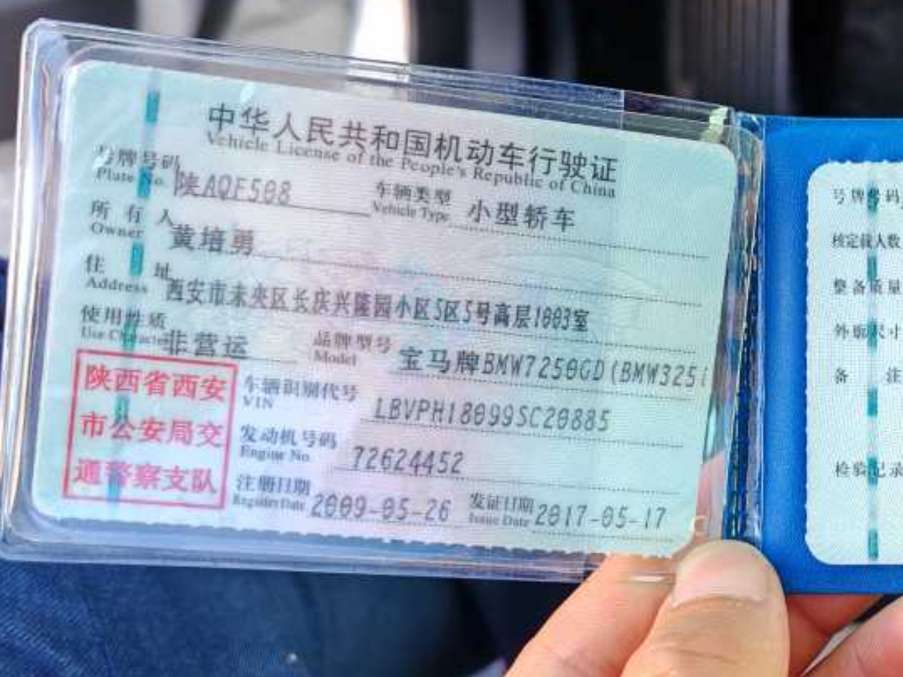 中华人民共和国机动车行驶证
Vehicle License of the People's Republic of China
号牌号码 陕AQF508 车辆类型 小型轿车
Plate No. Vehicle Type
所有人 黄培勇
Owner
住址 西安市未央区长庆兴隆园小区5区5号高层1003室
Address
使用性质 非营运 品牌型号 宝马牌BMW7250GD(BMW325i
Use Character Model
陕西省西安
市公安局交
通警察支队
车辆识别代号 LBVPH18099SC20885
VIN
发动机号码 72624452
Engine No.
注册日期 2009-05-26 发证日期 2017-05-17
Register Date Issue Date
号牌号码
核定载人数
整备质量
外廓尺寸
备注
检验记录